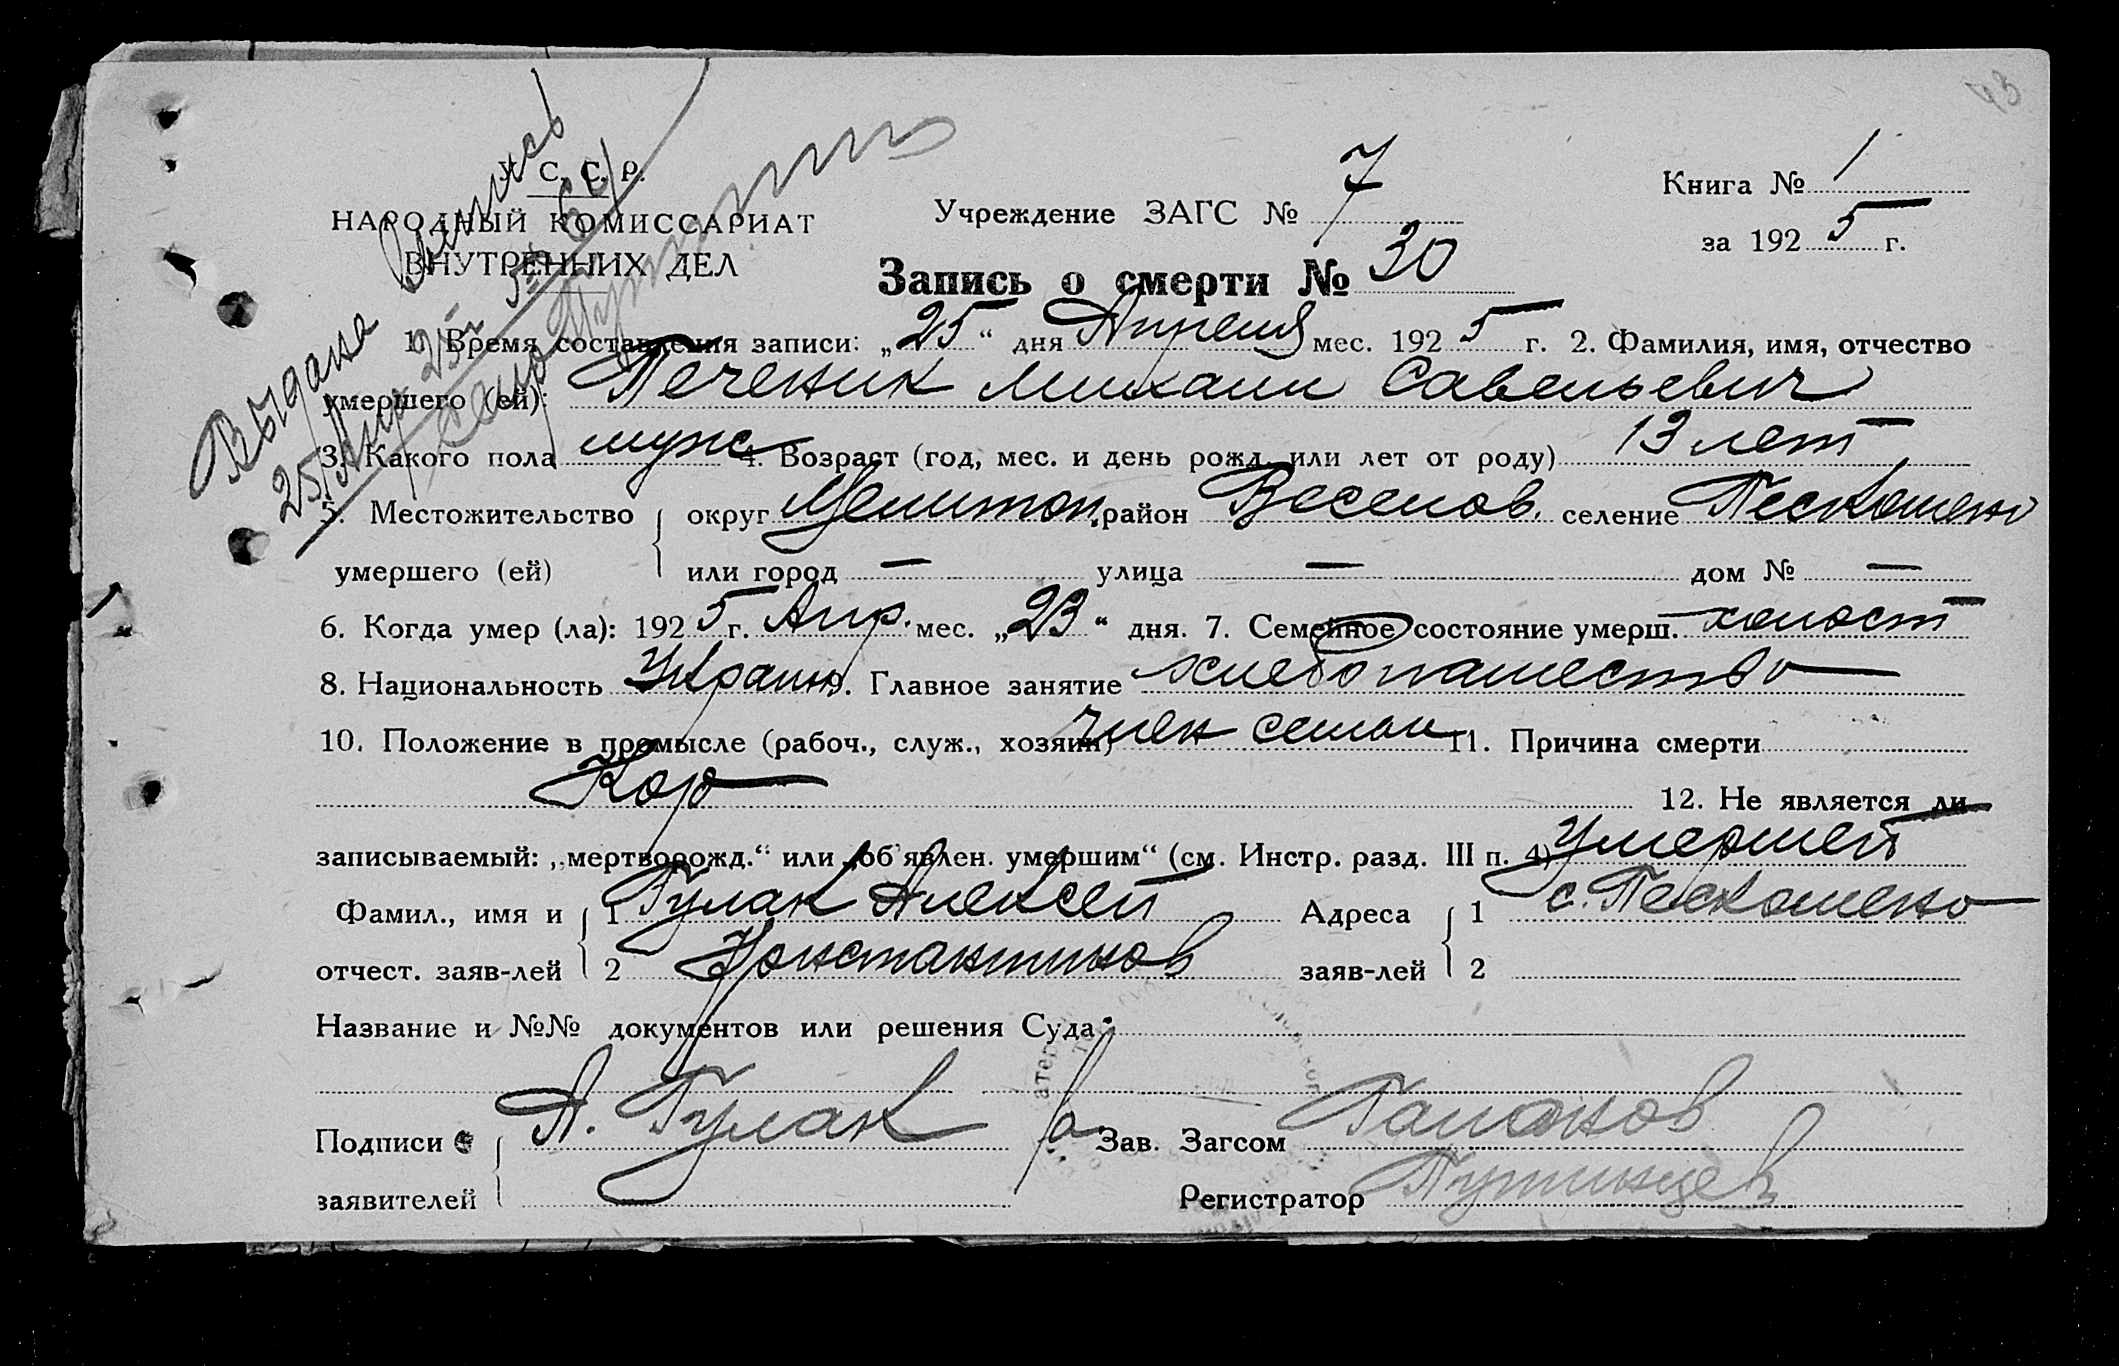 43
У. С. С. Р.
НАРОДНЫЙ КОМИССАРИАТ
ВНУТРЕННИХ ДЕЛ
Выдана Выпись
25/Апр 25 г.
Учреждение ЗАГС № 7
Книга № 1
за 1925 г.
Запись о смерти № 30
1. Время составления записи: „25“ дня Апреля мес. 1925 г. 2. Фамилия, имя, отчество
умершего (ей): Печеник Михаил Савельевич
3. Какого пола муж 4. Возраст (год, мес. и день рожд. или лет от роду) 13 лет
5. Местожительство { округ Мелитоп. район Веселов. селение Пескошено
умершего (ей) или город — улица — дом № —
6. Когда умер (ла): 1925 г. Апр. мес. „23“ дня. 7. Семейное состояние умерш. холост
8. Национальность Украин. 9. Главное занятие хлебопашество
10. Положение в промысле (рабоч., служ., хозяин) член семьи 11. Причина смерти
Кор 12. Не является ли
записываемый: „мертворожд.“ или „об'явлен. умершим“ (см. Инстр. разд. III п. 4) Умерший
Фамил., имя и { 1 Гулак Алексей Адреса { 1 с. Пескошено
отчест. заяв-лей 2 Константинов заяв-лей 2
Название и №№ документов или решения Суда:
Подписи { А. Гулак Зав. Загсом
заявителей Регистратор Путинцев